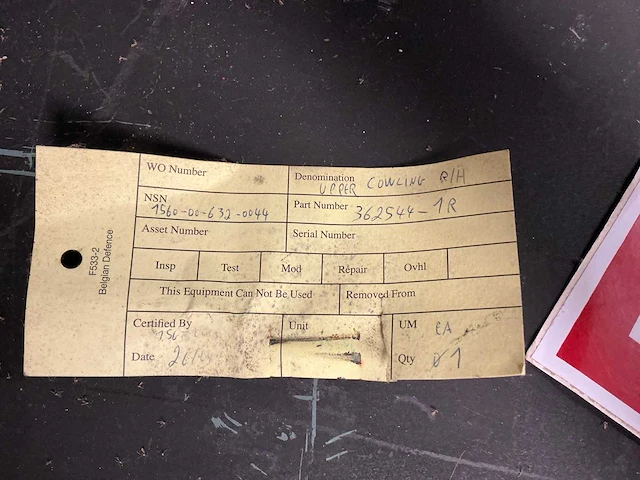 WO Number
Denomination
UPPER COWLING R/H
NSN
1560-00-632-0044
Part Number 362544-1R
Asset Number
Serial Number
Insp Test Mod Repair Ovhl
This Equipment Can Not Be Used
Removed From
Certified By
Unit
UM EA
Date
Qty 1
F533-2
Belgian Defence